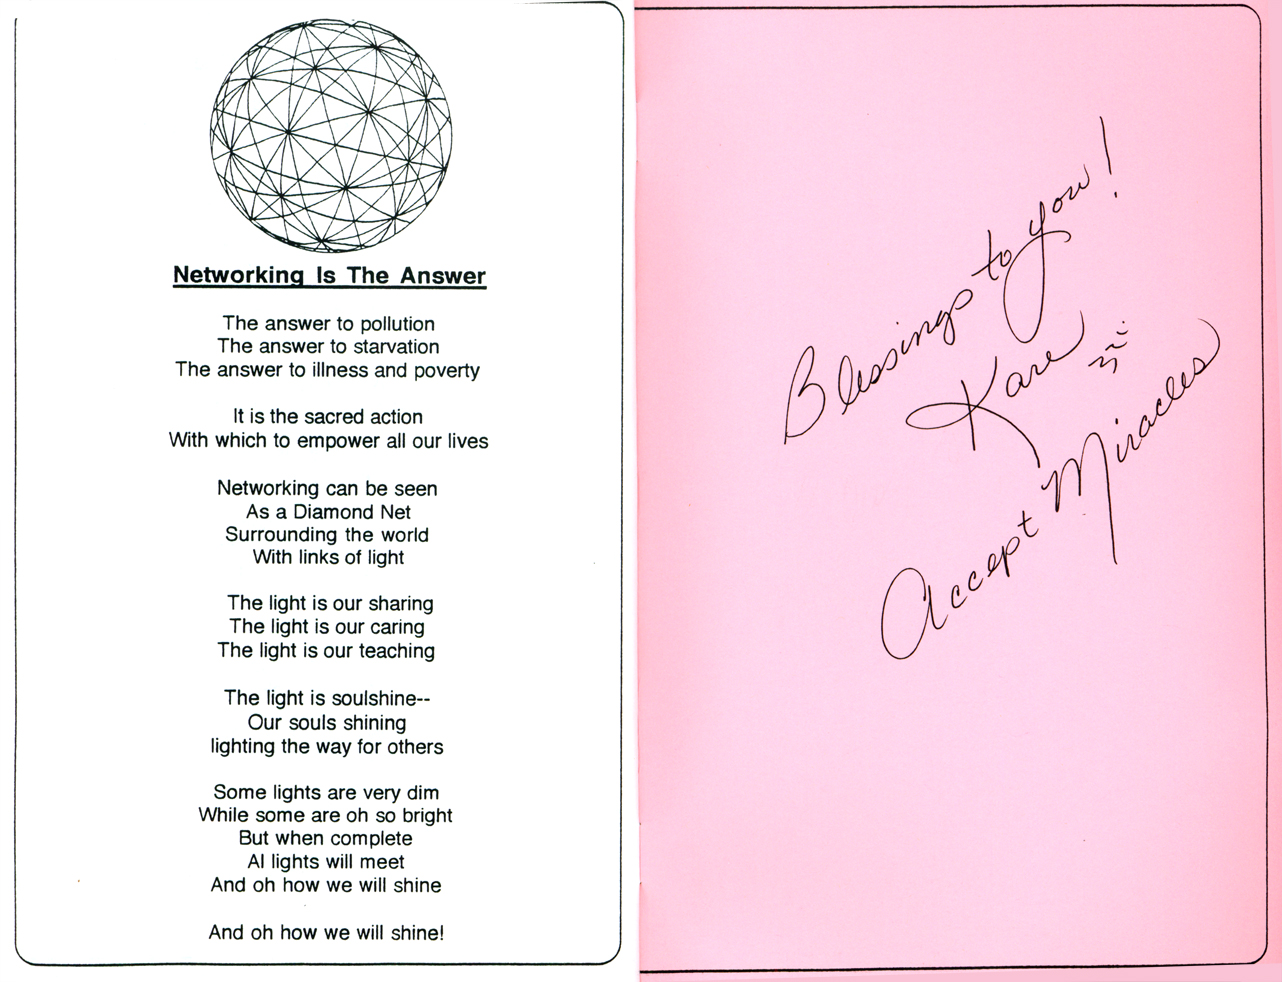 Networking Is The Answer
The answer to pollution
The answer to starvation
The answer to illness and poverty
It is the sacred action
With which to empower all our lives
Networking can be seen
As a Diamond Net
Surrounding the world
With links of light
The light is our sharing
The light is our caring
The light is our teaching
The light is soulshine--
Our souls shining
lighting the way for others
Some lights are very dim
While some are oh so bright
But when complete
Al lights will meet
And oh how we will shine
And oh how we will shine!
Blessings to you!
Kare
Accept Miracles